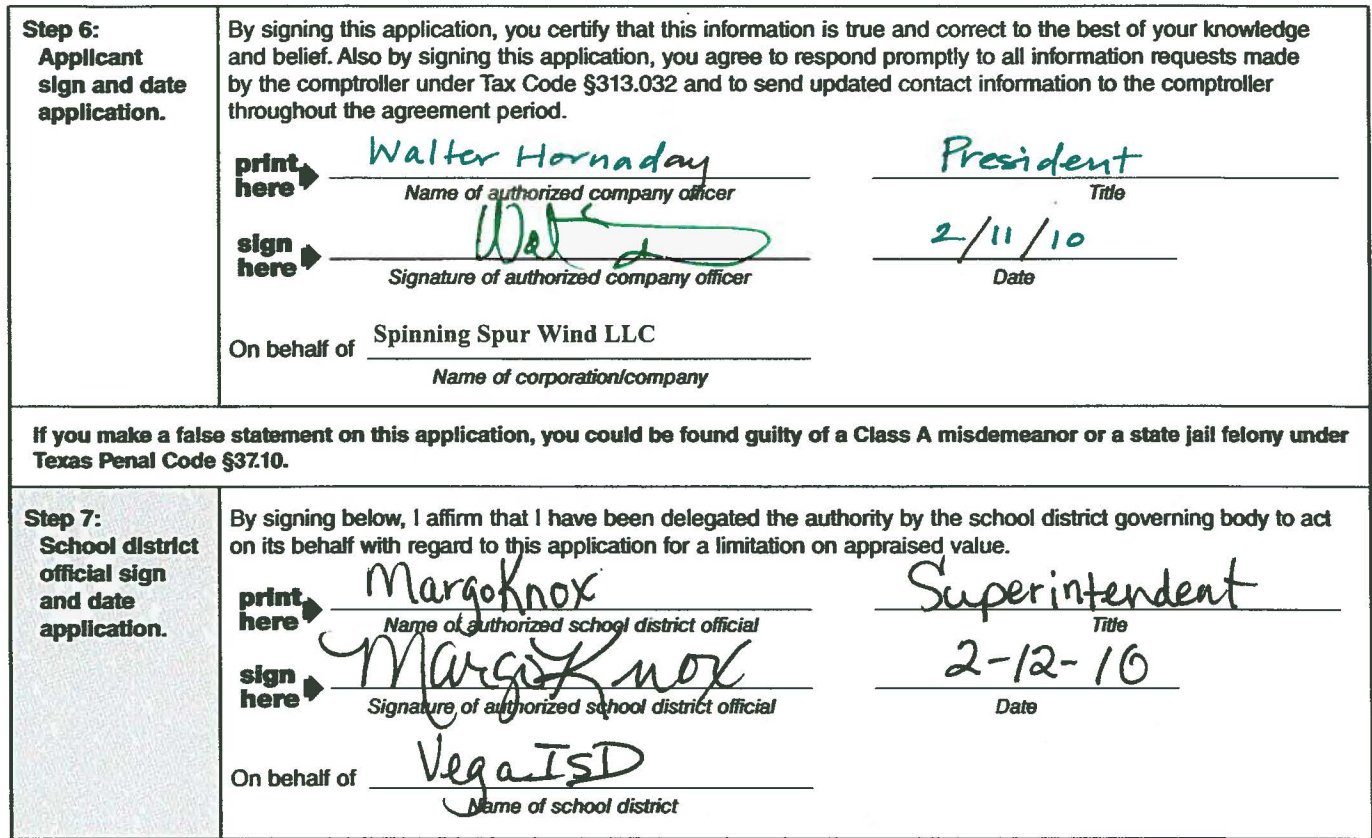 Step 6:
Applicant
sign and date
application.
By signing this application, you certify that this information is true and correct to the best of your knowledge
and belief. Also by signing this application, you agree to respond promptly to all information requests made
by the comptroller under Tax Code §313.032 and to send updated contact information to the comptroller
throughout the agreement period.
print here Walter Hornaday President
Name of authorized company officer Title
sign here Walt 2/11/10
Signature of authorized company officer Date
On behalf of Spinning Spur Wind LLC
Name of corporation/company
If you make a false statement on this application, you could be found guilty of a Class A misdemeanor or a state jail felony under
Texas Penal Code §37.10.
Step 7:
School district
official sign
and date
application.
By signing below, I affirm that I have been delegated the authority by the school district governing body to act
on its behalf with regard to this application for a limitation on appraised value.
print here Margo Knox Superintendent
Name of authorized school district official Title
sign here Margo Knox 2-12-10
Signature of authorized school district official Date
On behalf of Vega ISD
Name of school district